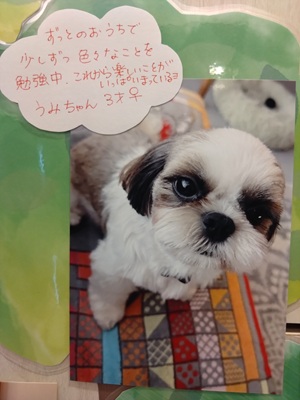 ずっとのおうちで
少しずつ 色々なことを
勉強中。これから楽しいことが
いっぱいまっているヨ
うみちゃん 3才♀